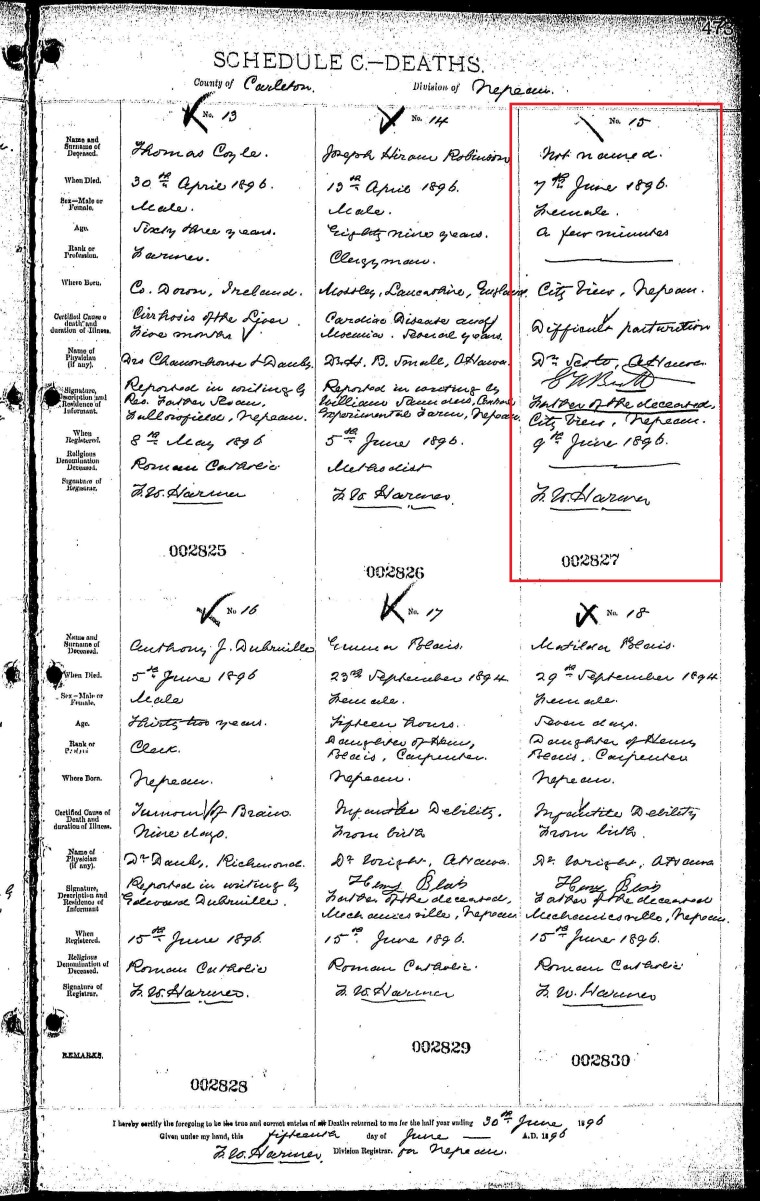 473
SCHEDULE C.—DEATHS.
County of Carleton. Division of Nepean.
No. 13
Name and Surname of Deceased. Thomas Coyle.
When Died. 30th April 1896.
Sex—Male or Female. Male.
Age. Sixty three years.
Rank or Profession. Farmer.
Where Born. Co. Down, Ireland.
Certified Cause of death and duration of Illness. Cirrhosis of the Liver
Five months
Name of Physician (if any). Drs &
Signature, Description and Residence of Informant. Reported in writing by
Rev. Father Sloan,
Fallowfield, Nepean.
When Registered. 8th May 1896
Religious Denomination Deceased. Roman Catholic
Signature of Registrar. F. W. Harmer
002825
No. 14
Joseph Hiram Robinson
13th April 1896.
Male.
Eighty nine years.
Clergyman.
Mossley, Lancashire, England.
Cardiac Disease and
Several years.
Dr H. B. Small, Ottawa.
Reported in writing by
William Saunders, Central
Experimental Farm, Nepean
5th June 1896.
Methodist
F. W. Harmer
002826
No. 15
Not named.
7th June 1896.
Female.
A few minutes
City View, Nepean.
Difficult parturition
Dr Scott, Ottawa
Father of the deceased,
City View, Nepean.
9th June 1896.
F. W. Harmer
002827
No 16
Name and Surname of Deceased. Anthony J. Dubruille
When Died. 5th June 1896
Sex—Male or Female. Male
Age. Thirty two years.
Rank or Clerk.
Where Born. Nepean.
Certified Cause of Death and duration of Illness. Tumour of Brain
Nine days.
Name of Physician (if any). Dr Danby, Richmond.
Signature, Description and Residence of Informant Reported in writing by
Edward Dubruille.
When Registered. 15th June 1896.
Religious Denomination of Deceased. Roman Catholic
Signature of Registrar. F. W. Harmer.
REMARKS.
002828
No. 17
Emma Blais.
23rd September 1894.
Female.
Fifteen hours.
Daughter of Henry
Blais, Carpenter.
Nepean.
Infantile Debility.
From birth
Dr Wright, Ottawa.
Henry Blais
Father of the deceased,
Mechanicsville, Nepean
15th June 1896.
Roman Catholic.
F. W. Harmer
002829
No. 18
Matilda Blais.
29th September 1894
Female.
Seven days.
Daughter of Henry
Blais, Carpenter
Nepean.
Infantile Debility
From birth.
Dr Wright, Ottawa
Henry Blais
Father of the deceased
Mechanicsville, Nepean.
15th June 1896.
Roman Catholic
F. W. Harmer
002830
I hereby certify the foregoing to be the true and correct entries of all Deaths returned to me for the half year ending 30th June, 1896
Given under my hand, this fifteenth day of June A.D. 1896
F. W. Harmer, Division Registrar. for Nepean.